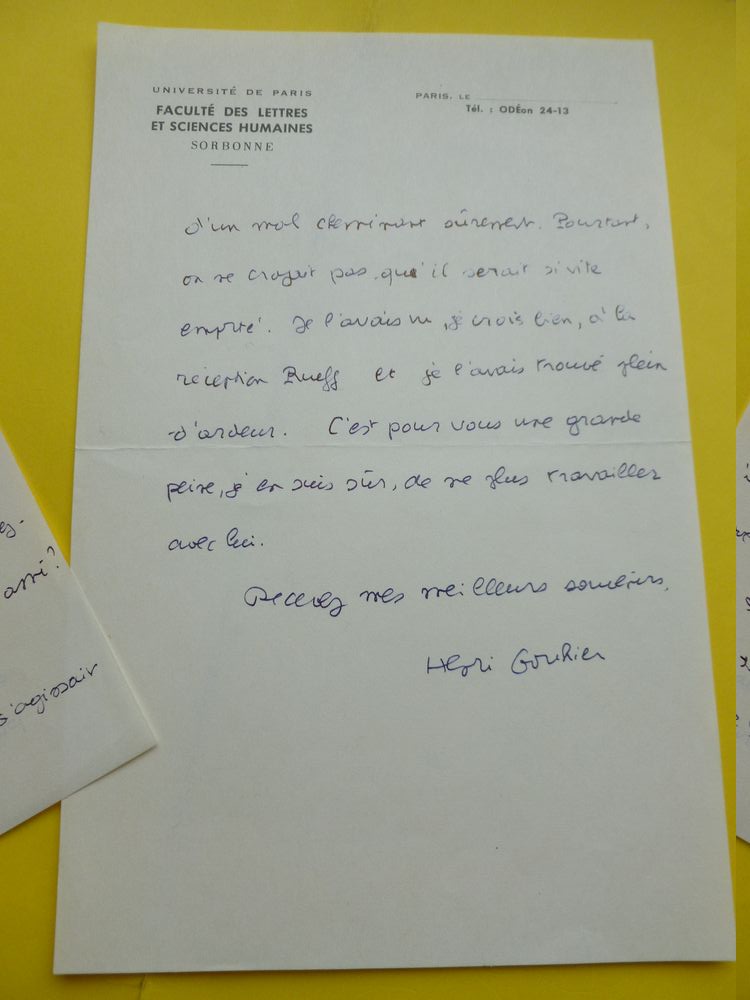 UNIVERSITÉ DE PARIS
FACULTÉ DES LETTRES
ET SCIENCES HUMAINES
SORBONNE
PARIS, LE
Tél. : ODÉon 24-13
d'un mal cheminant sûrement. Pourtant,
on ne croyait pas qu'il serait si vite
emporté. Je l'avais vu, je crois bien, à la
réception Rueff et je l'avais trouvé plein
d'ardeur. C'est pour vous une grande
peine, j'en suis sûr, de ne plus travailler
avec lui.
Recevez mes meilleurs souvenirs.
Henri Gouhier
s'agissait